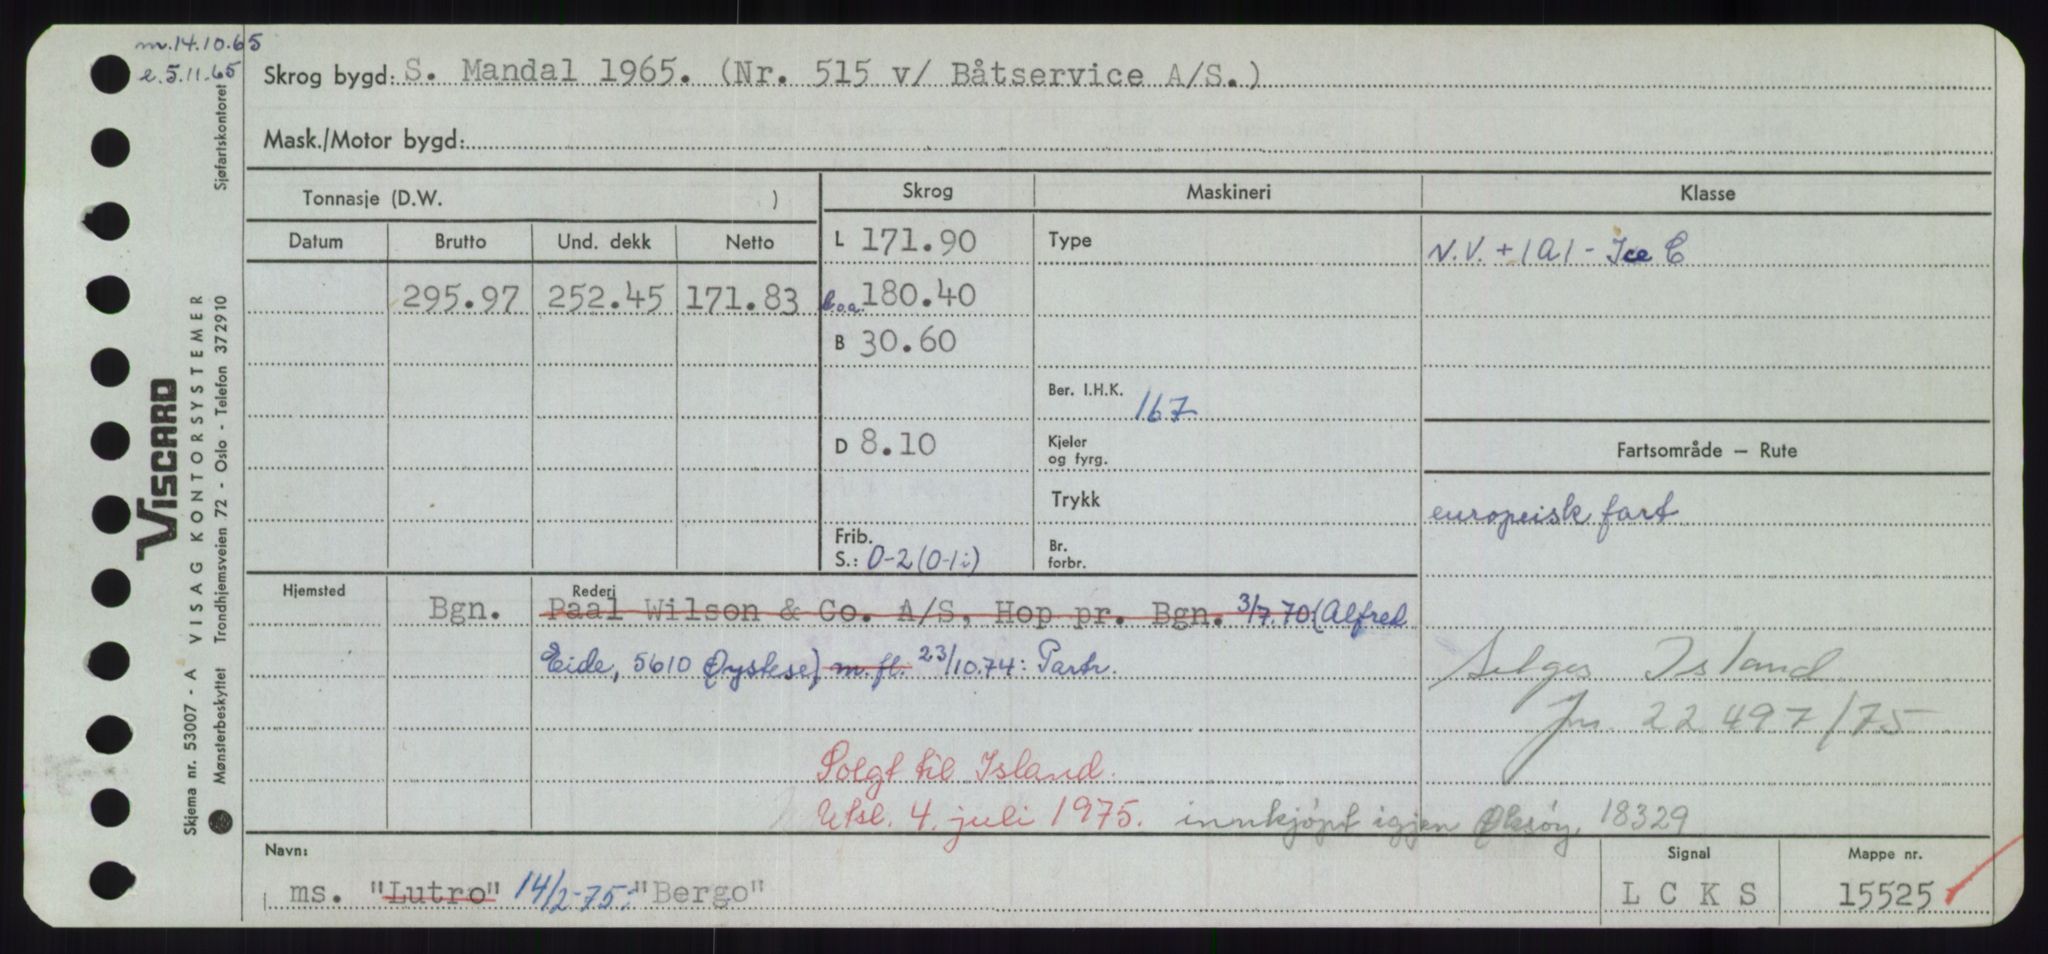 m.14.10.65
e.5.11.65
Skrog bygd: S. Mandal 1965. (Nr. 515 v/ Båtservice A/S.)
Mask./Motor bygd:
Tonnasje (D.W. )
Skrog
Maskineri
Klasse
Datum
Brutto
Und. dekk
Netto
L 171.90
Type
N.V. + 1A1 - Ice C
295.97
252.45
171.83
l.o.a. 180.40
B 30.60
Ber. I.H.K. 167
D 8.10
Kjeler
og fyrg.
Fartsområde — Rute
Trykk
europeisk fart
Frib.
S.: 0-2 (0-1i)
Br.
forbr.
Hjemsted
Rederi
Bgn.
Paal Wilson & Co. A/S, Hop pr. Bgn. 3/7.70 (Alfred
Eide, 5610 Øystese) m.fl. 23/10.74: Partr.
Selges Island
Jnr. 22497/75
Solgt til Island.
Utsl. 4. juli 1975. innkjøpt igjen Øksøy, 18329
Navn:
ms. "Lutro" 14/2-75: "Bergo"
Signal
L C K S
Mappe nr.
15525
VISCARD
Skjema nr. 53007 - A VISAG KONTORSYSTEMER
Mønsterbeskyttet Trondhjemsveien 72 - Oslo - Telefon 372910
Sjøfartskontoret